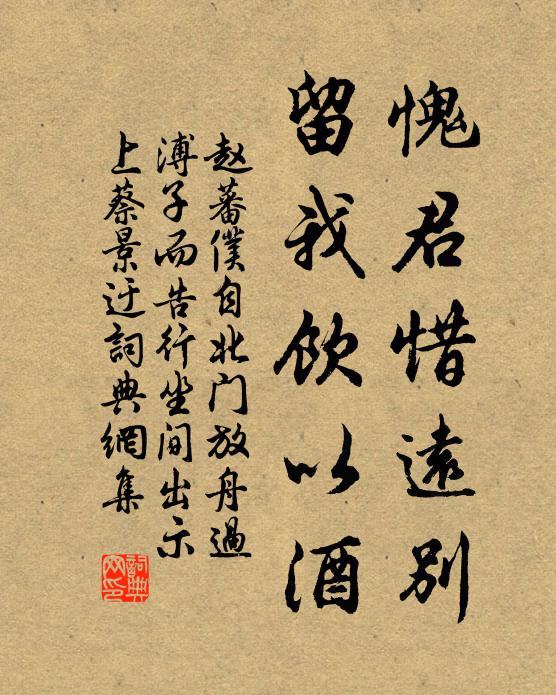 愧君惜遠别
留我飲以酒
赵蕃僕自北门放舟過
溥子而告行坐间出示
上蔡景迂詞典網集
詞典網印